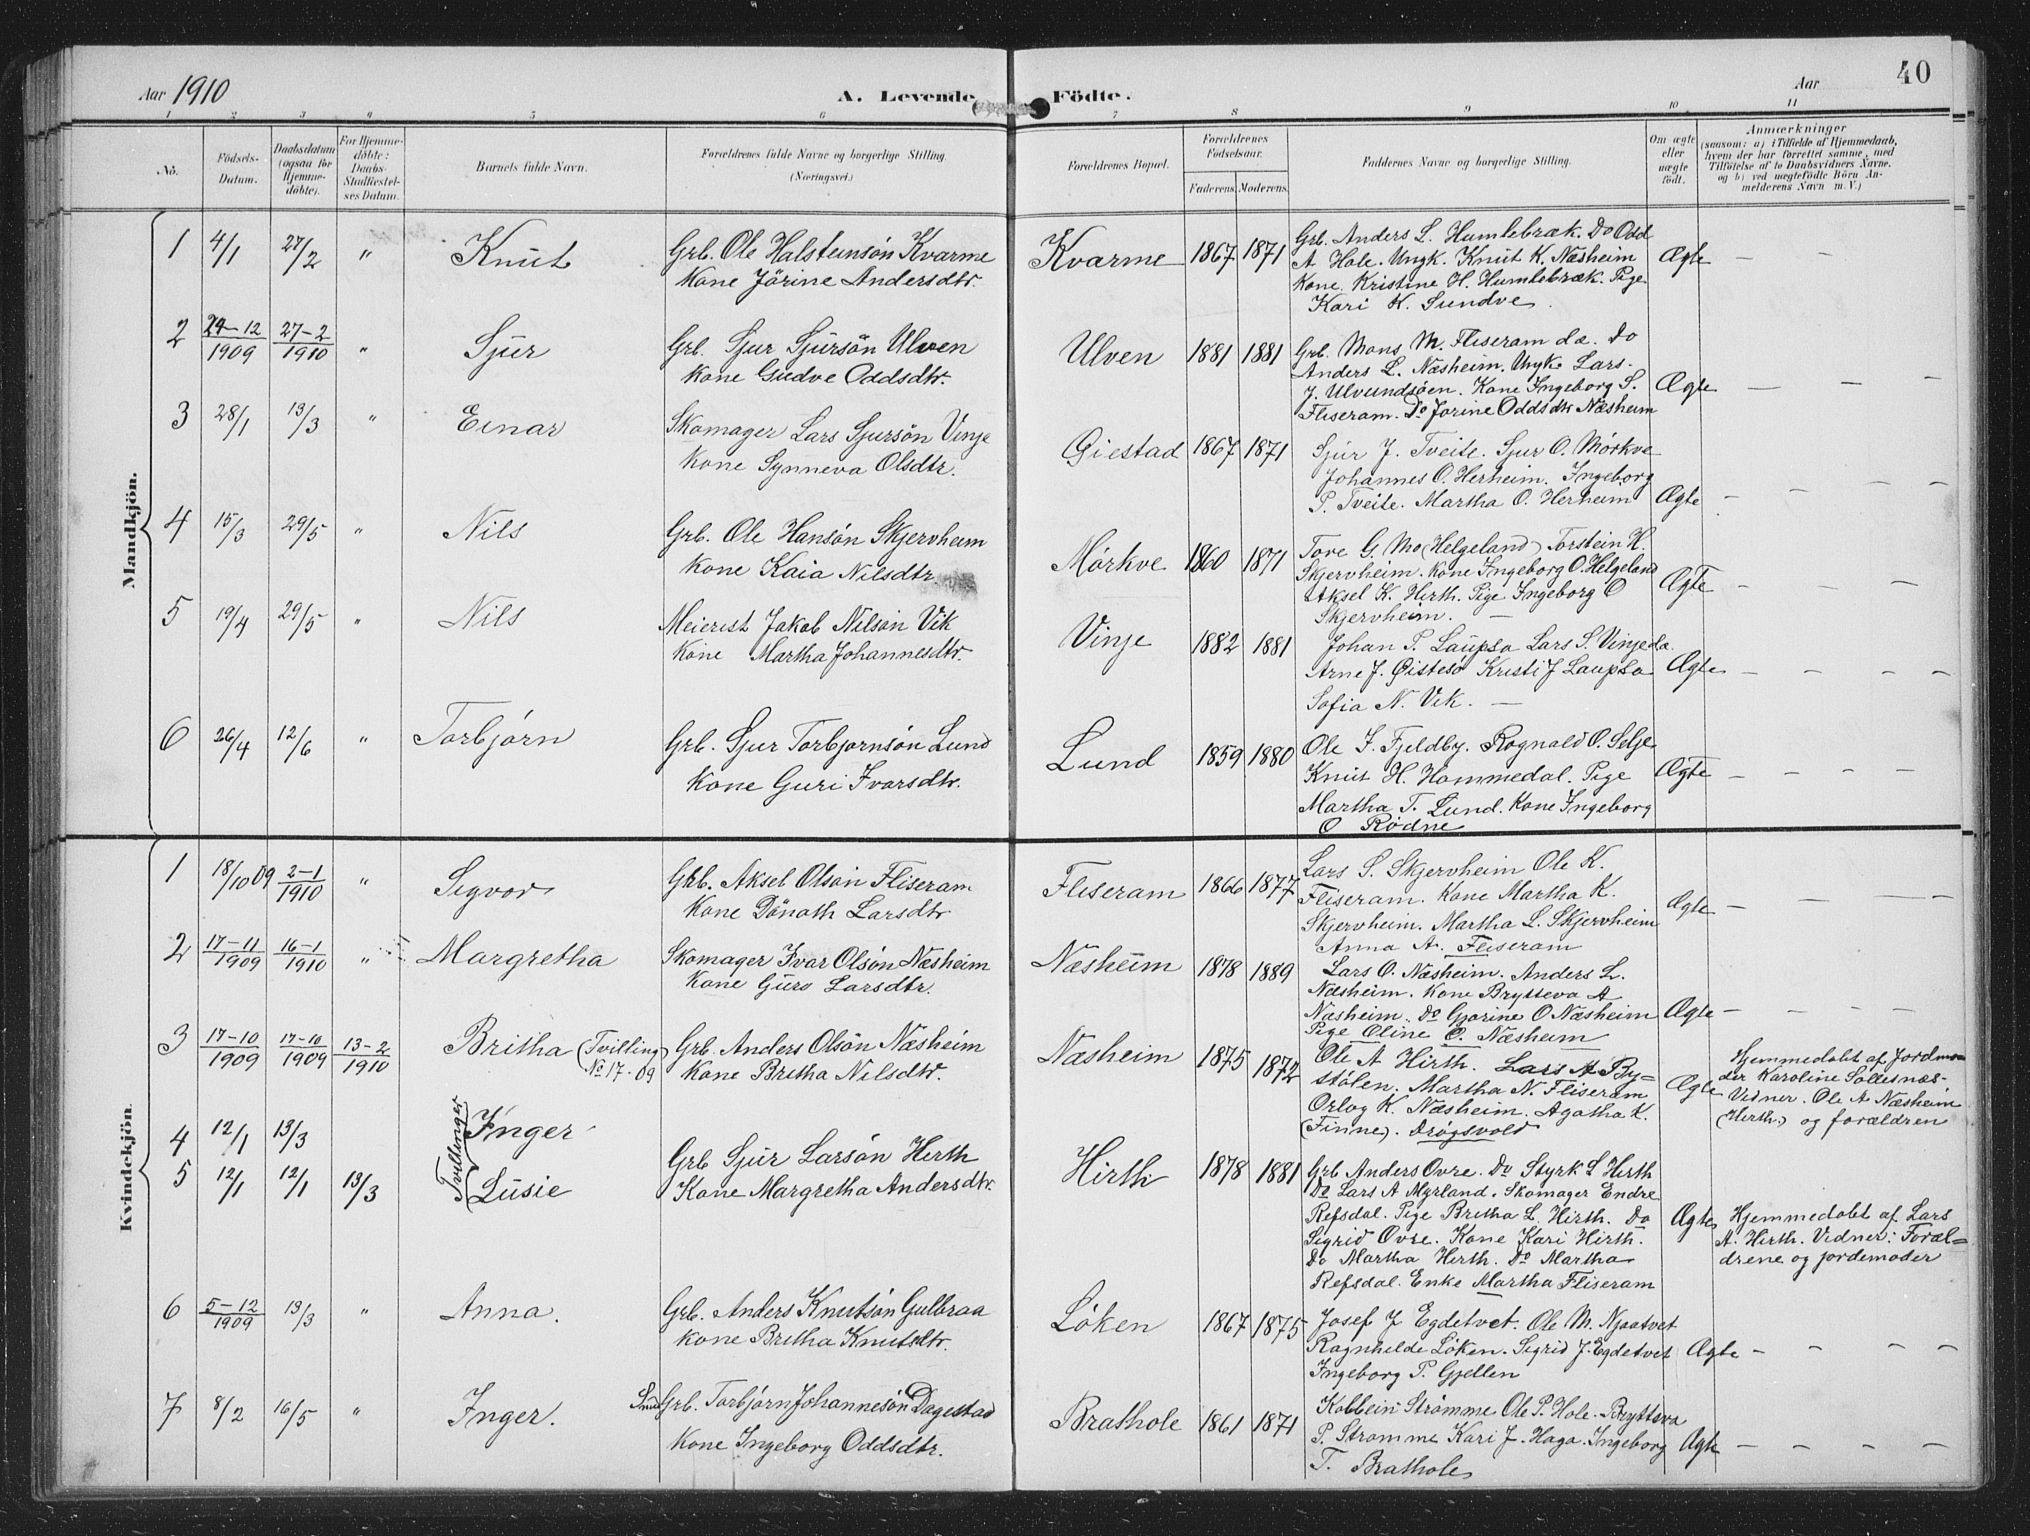 Aar 1910
A. Levende Födte.
Aar
40
1 2 3 4 5 6 7 8 9 10 11
No.
Födsels-Datum.
Daabsdatum (ogsaa for Hjemme-döbte).
For Hjemme-döbte: Daabs-Stadfæstel-ses Datum.
Barnets fulde Navn.
Forældrenes fulde Navne og borgerlige Stilling.
(Næringsvei.)
Forældrenes Bopæl.
Forældrenes Födselsaar.
Faderens. Moderens.
Faddernes Navne og borgerlige Stilling.
Om ægte eller uægte födt.
Anmærkninger
(saasom: a) i Tilfælde af Hjemmedaab,
hvem der har forrettet samme, med
Tilföielse af to Daabsvidners Navne,
og b) ved uægtefödte Börn An-
melderens Navn m. V.)
Mandkjön.
1 4/1 27/2 " Knut
Grb. Ole Halsteinsön Kvarme
Kone Jörine Andersdtr.
Kvarme 1867 1871
Grb. Anders L. Humlebræk. Do Odd
A Hole. Ungk. Knut K. Næsheim
Kone. Kristine H. Humlebræk. Pige
Kari K. Sundve.
Ægte — — —
2 29-12/1909 27-2/1910 " Sjur
Grb. Sjur Sjursön Ulven
Kone Gudve Oddsdtr.
Ulven 1881 1881
Grb. Mons M. Fliseram d.æ. Do
Anders L. Næsheim. Ungk. Lars
J. Ulvundsöen. Kone Ingeborg S.
Fliseram. Do Jorine Oddsdtr Næsheim
Ægte — — —
3 28/1 13/3 " Einar
Skomager Lars Sjursön Vinje
Kone Synneva Olsdtr.
Giestad 1867 1871
Sjur J. Tveite. Sjur O. Mörkve
Johannes O. Herheim. Ingeborg
P. Tveite. Martha O. Herheim
Ægte — — — —
4 15/3 29/5 " Nils
Grb. Ole Hansön Skjervheim
Kone Kaia Nilsdtr.
Mörkve 1860 1871
Tore G. Mo (Helgeland) Torstein H.
Skjervheim. Kone Ingeborg O. Helgeland
Aksel K. Hirth. Pige Ingeborg O
Skjervheim. —
Ægte — — — —
5 19/4 29/5 " Nils
Meierist Jakob Nilsön Vik
Kone Martha Johannesdtr.
Vinje 1882 1881
Johan P. Laupsa Lars S. Vinje d.æ.
Arne J. Öistesö Kristi J Laupsa
Sofia N. Vik. —
Ægte — — — —
6 26/4 12/6 " Torbjörn
Grb. Sjur Torbjornsön Lund
Kone Guri Ivarsdtr.
Lund 1859 1880
Ole I. Fjeldby. Rognald O. Selje
Knut H. Hammedal. Pige
Martha T. Lund. Kone Ingeborg
O Rödne
Ægte — — — —
Kvindekjön.
1 18/10 09 2-1/1910 " Sygvor
Grb. Aksel Olsön Fliseram
Kone Dönath Larsdtr
Fliseram 1866 1877
Lars S. Skjervheim Ole K.
Fliseram. Kone Martha K.
Skjervheim. Martha L. Skjervheim
Anna A. Fliseram
Ægte — — — —
2 17-11/1909 16-1/1910 " Margretha
Skomager Ivar Olsön Næsheim
Kone Guro Larsdtr.
Næsheim 1878 1889
Lars O. Næsheim. Anders L.
Næsheim. Kone Brytteva A
Næsheim. Do Gjorine O Næsheim
Pige Oline O. Næsheim
Ægte — — — —
3 17-10/1909 17-10/1909 13-2/1910 Britha (Tvilling
No 17-09
Grb. Anders Olsön Næsheim
Kone Britha Nilsdtr.
Næsheim 1875 1872
Ole A Hirth. Lars A By-
stölen. Martha N. Fliseram
Orlog K. Næsheim. Agatha K.
(Finne). Drögsvold
Ægte
Hjemmedöbt af Jordmo-
der Karoline Sollesnæs-
Vidner. Ole A Næsheim
(Hirth.) og forældren
Tvillinger
4 12/1 13/3 Inger
5 12/1 12/1 13/3 Lusie
Grb Sjur Larsön Hirth
Kone Margretha Andersdtr.
Hirth 1878 1881
Grb Anders Övre. Do Styrk L Hirth
Do Lars A Myrland. Skomager Endre
Refsdal. Pige Britha L. Hirth. Do
Sigrid Övre. Kone Kari Hirth.
Do Martha Hirth. Do Martha
Refsdal. Enke Martha Fliseram
Ægte
Hjemmedöbt af Lars
A. Hirth. Vidner: Foræl-
drene og jordemoder
6 5-12/1909 13/3 " Anna.
Grb. Anders Knutsön Gulbraa
Kone Britha Knutsdtr.
Löken 1867 1875
Josef J Egdetvet. Ole M. Njaatvet
Ragnhilde Löken. Sigrid J. Egdetvet
Ingeborg P. Gjellen
Ægte — — — —
7 8/2 16/5 " Inger.
Grb. Torbjörn Johannesön Dagestad
Kone Ingeborg Oddsdtr.
Brathole 1861 1871
Kolbein Strömme Ole P. Hole. Brytteva
P. Strömme Kari J. Haga. Ingeborg
T. Brathole
Ægte — — — —